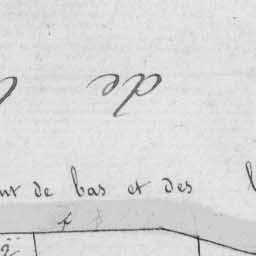 de
nt de bas et des